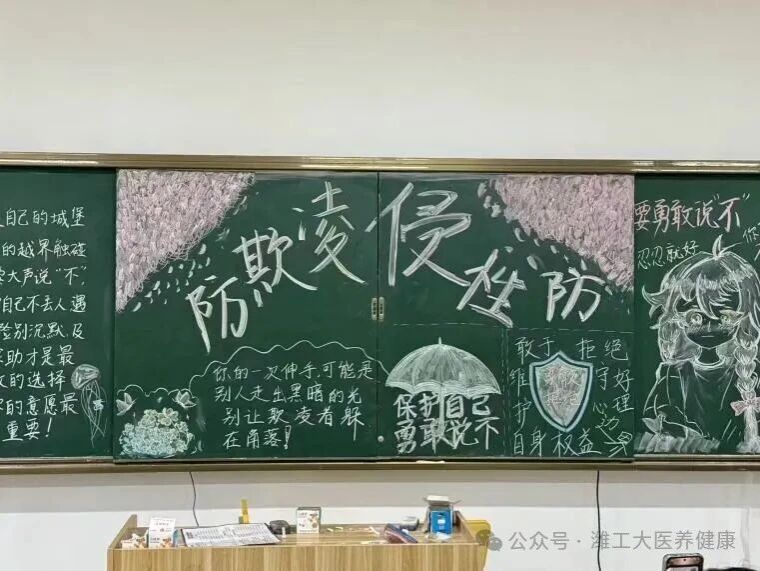 自己的城堡
的越界触碰
大声说"不",
自己不去人遇
险别沉默,及
求助才是最
的选择
的意愿最
重要!
防欺凌
防性侵
你的一次伸手,可能是
别人走出黑暗的光
别让欺凌者躲
在角落!
保护自己
勇敢说不
敢于拒绝
维护
自身权益
守好
心理
要勇敢说"不"
忍忍就好
公众号·潍工大医养健康